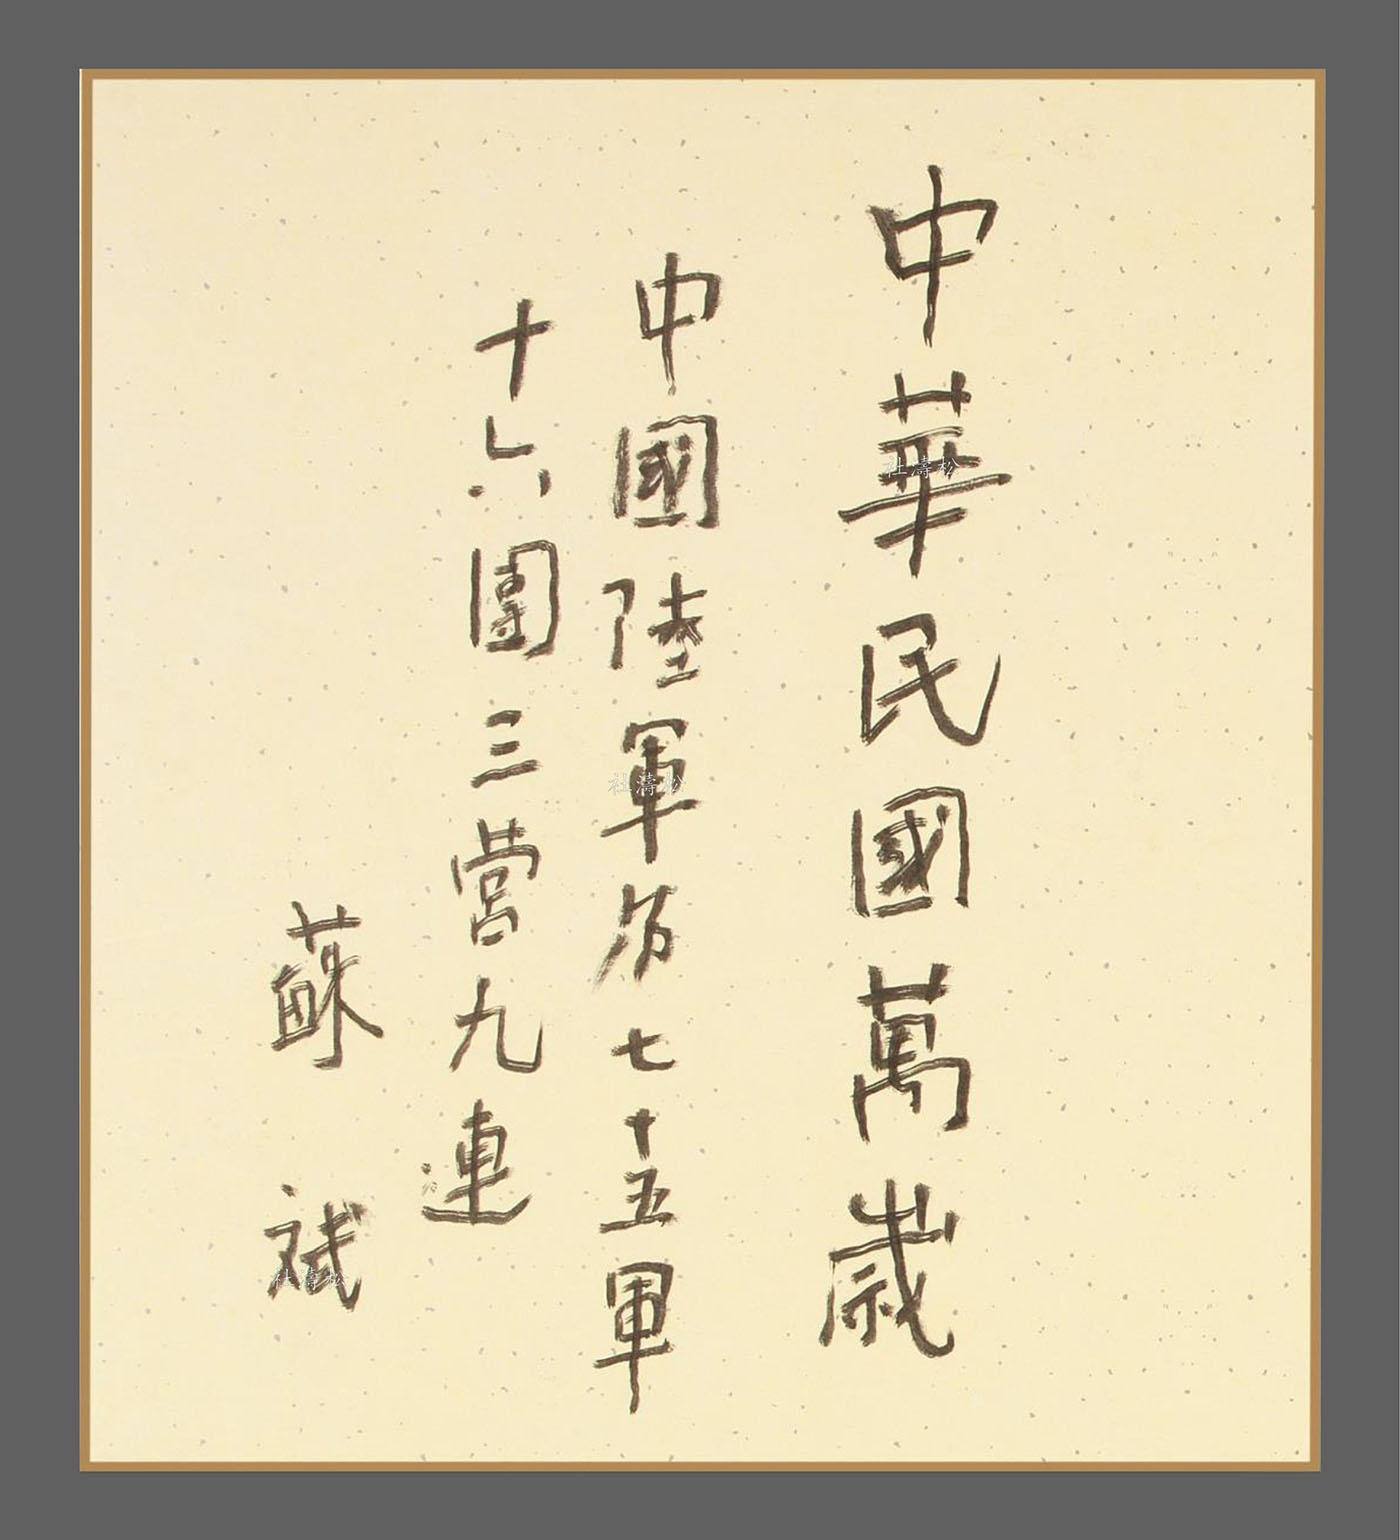 中華民國萬歲
中國陸軍第七十五軍
十六團三營九連
蘇斌
杜濤松
杜濤松
杜濤松